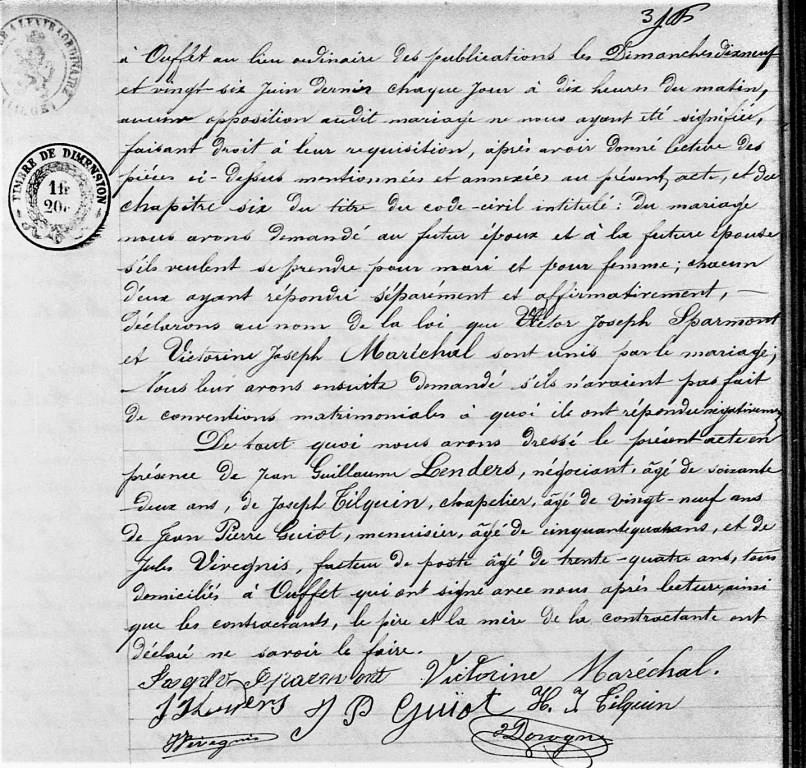 à Ouffet au lieu ordinaire des publications les Dimanches dixneuf
et vingt-six Juin dernier chaque jour à dix heures du matin,
aucune opposition audit mariage ne nous ayant été signifiée,
faisant droit à leur requisition, après avoir donné lecture des
pièces ci-dessus mentionnées et annexées au présent acte, et du
chapitre six du titre du code-civil intitulé: du mariage
nous avons demandé au futur époux et à la future épouse
s'ils veulent se prendre pour mari et pour femme; chacun
d'eux ayant répondu séparément et affirmativement, —
déclarons au nom de la loi que Victor Joseph Sparmont
et Victorine Joseph Maréchal sont unis par le mariage;
Nous leur avons ensuite demandé s'ils n'avaient pas fait
de conventions matrimoniales à quoi ils ont répondu négativement
De tout quoi nous avons dressé le présent acte en
présence de Jean Guillaume Lenders, négociant, âgé de soixante
-deux ans, de Joseph Tilquin, chapelier, âgé de vingt-neuf ans
de Jean Pierre Guiot, menuisier, âgé de cinquante quatre ans, et de
Jules Viregnis, facteur de poste âgé de trente-quatre ans, tous
domiciliés à Ouffet qui ont signé avec nous après lecture, ainsi
que les contractants, le père et la mère de la contractante ont
déclaré ne savoir le faire.
TIMBRE DE DIMENSION
1 fr
20c
Sparmont Victorine Maréchal.
J P Guiot H. J Tilquin